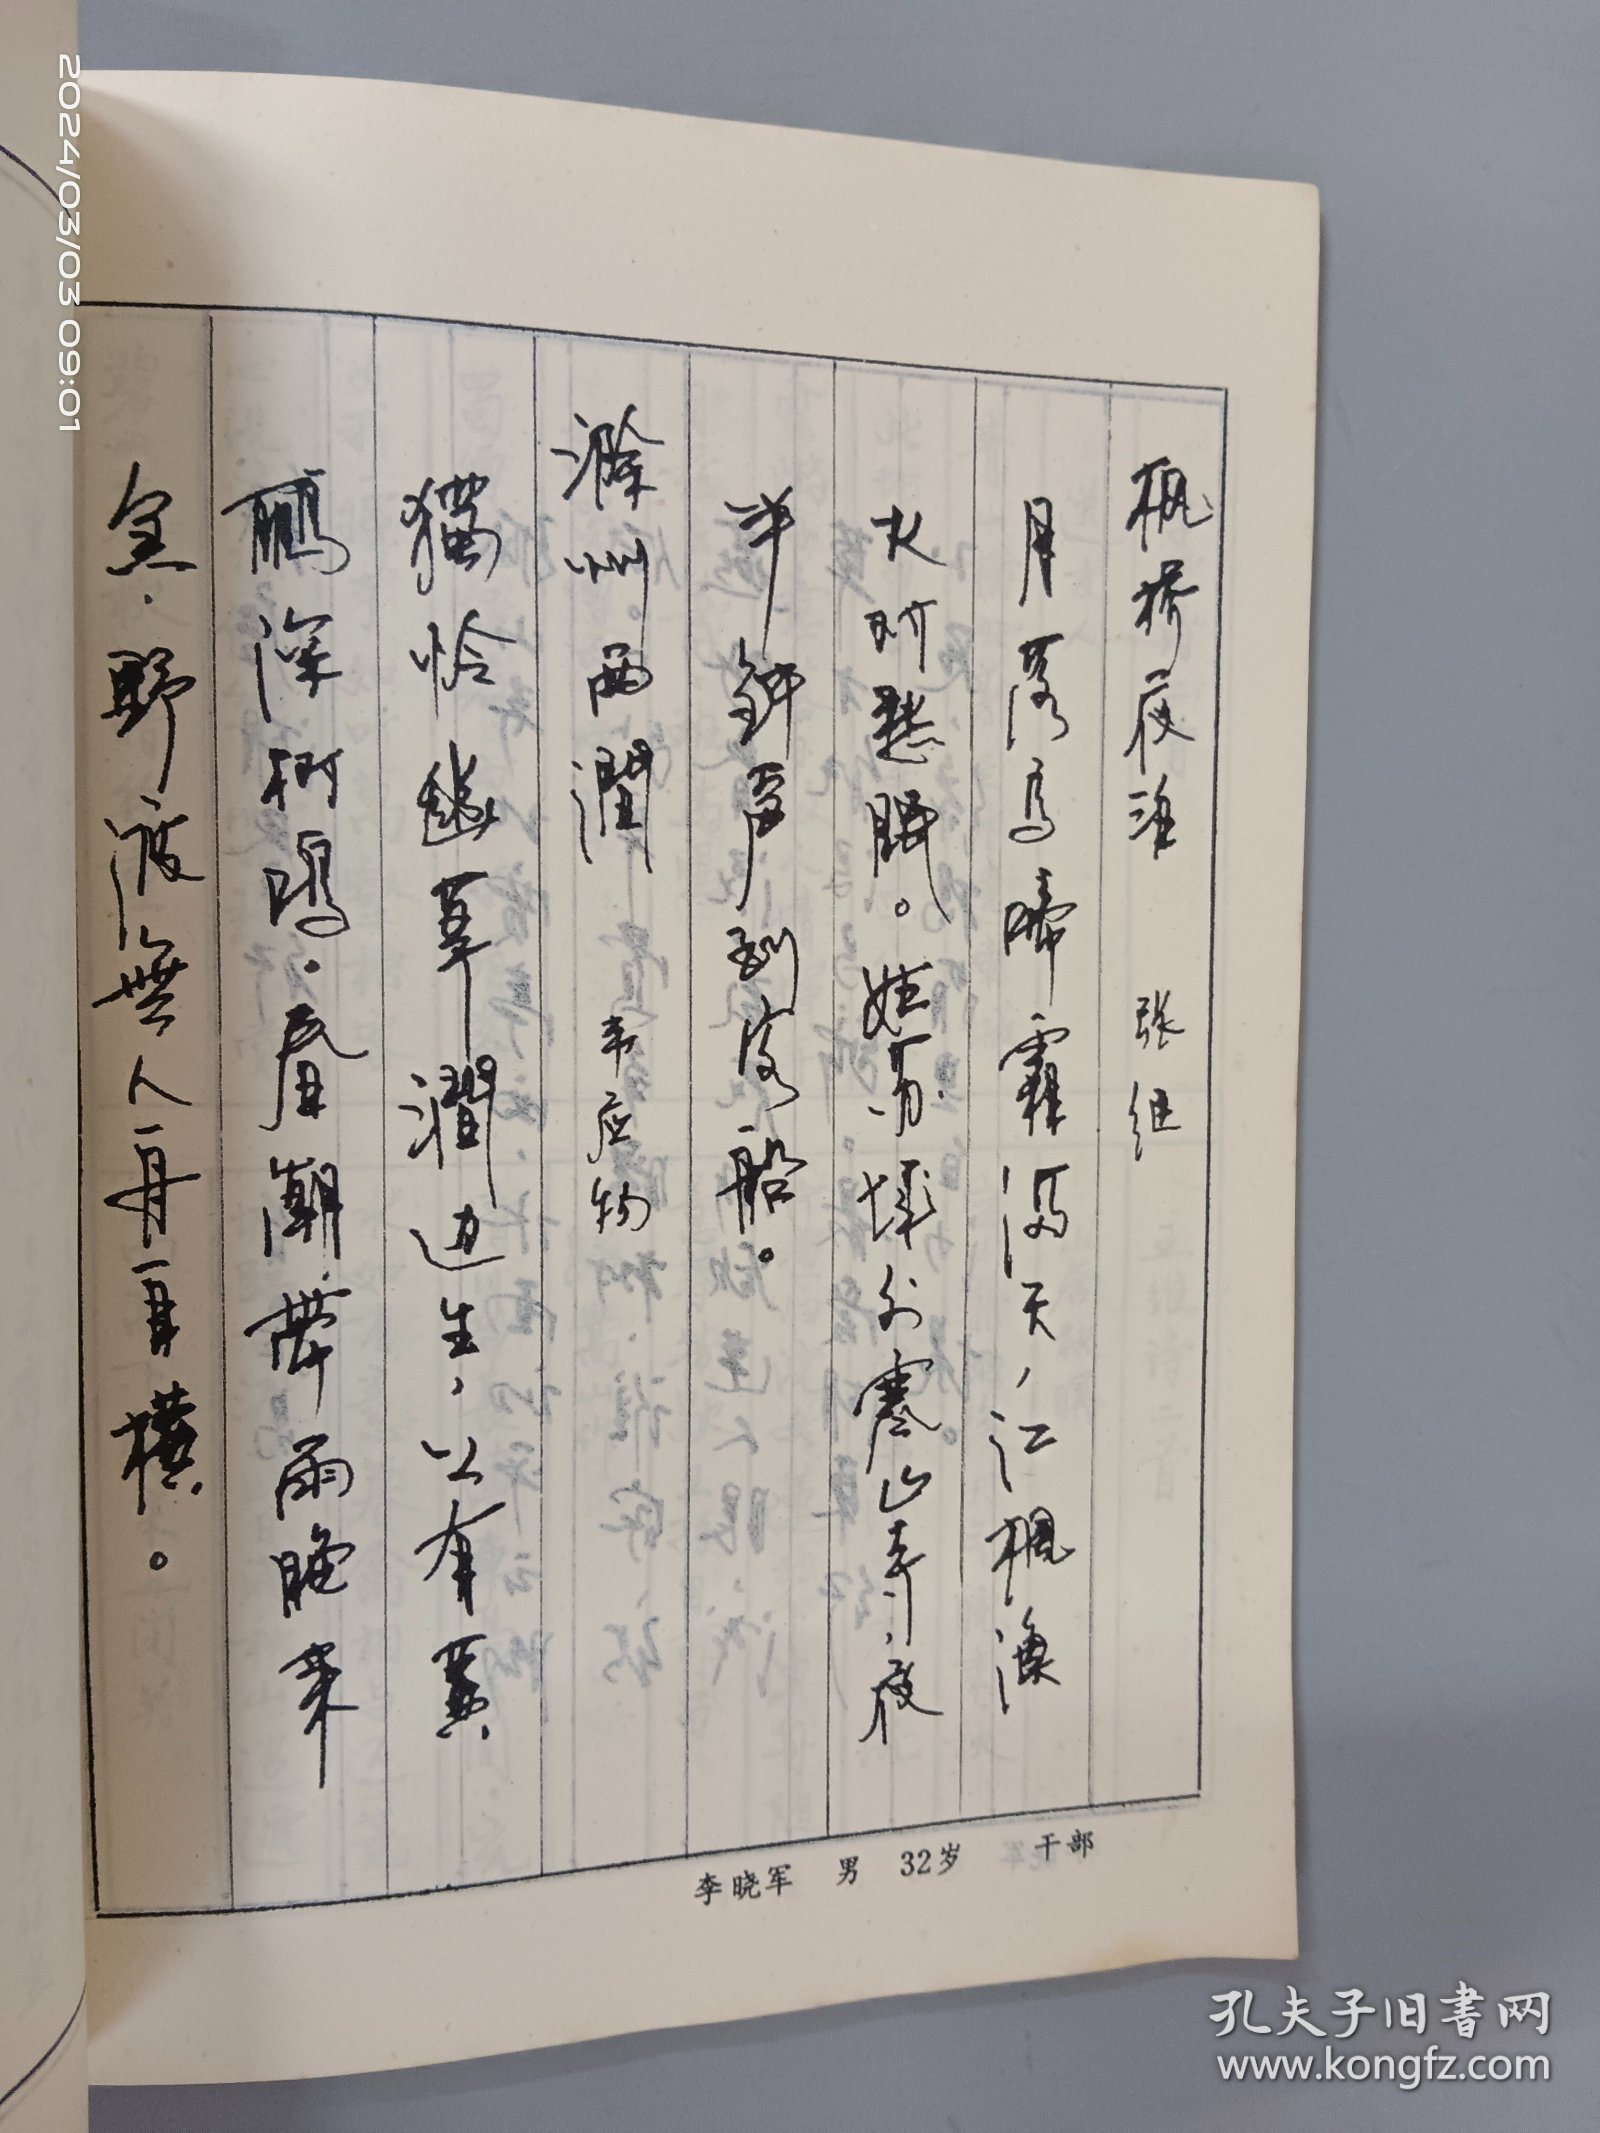 枫桥夜泊 张继
月落乌啼霜满天,江枫渔
火对愁眠。姑苏城外寒山寺,夜
半钟声到客船。
滁州西澗 韦应物
獨怜幽草澗边生,上有黄
鹂深树鸣。春潮带雨晚来
急,野渡無人舟自横。
李晓军 男 32岁 干部
2024/03/03 09:01
孔夫子旧书网
www.kongfz.com